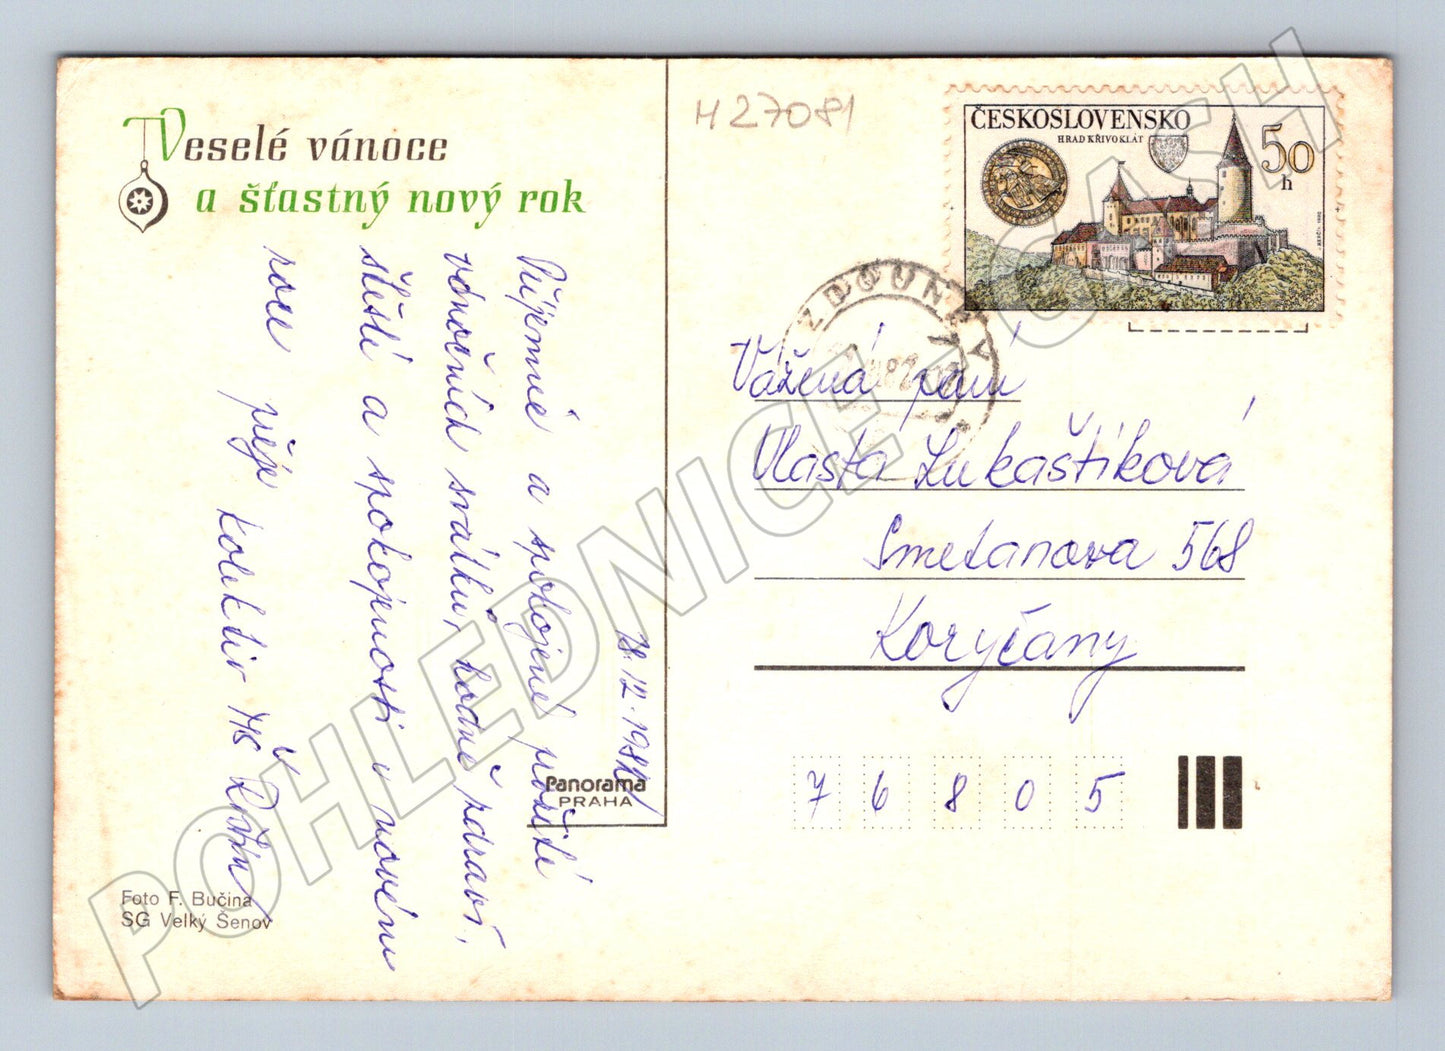 Veselé vánoce
a šťastný nový rok
Příjemné a spokojené prožití
vánočních svátků, hodně zdraví,
štěstí a spokojenosti v novém
roce přeje kolektiv MŠ
18.12.1982
Panorama
PRAHA
Foto F. Bučina
SG Velký Šenov
H27081
ČESKOSLOVENSKO
HRAD KŘIVOKLÁT
50
h
ZDOUNKY
Vážená paní
Vlasta Lukaštíková
Smetanova 568
Koryčany
76805
POHLEDNICE - CASH